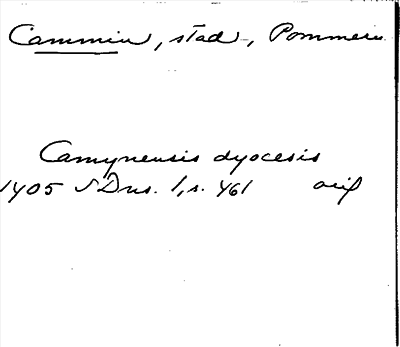 Cammin, stad, Pommern
Camynensis dyocesis
1405 SDns. 1, s. 461 orig